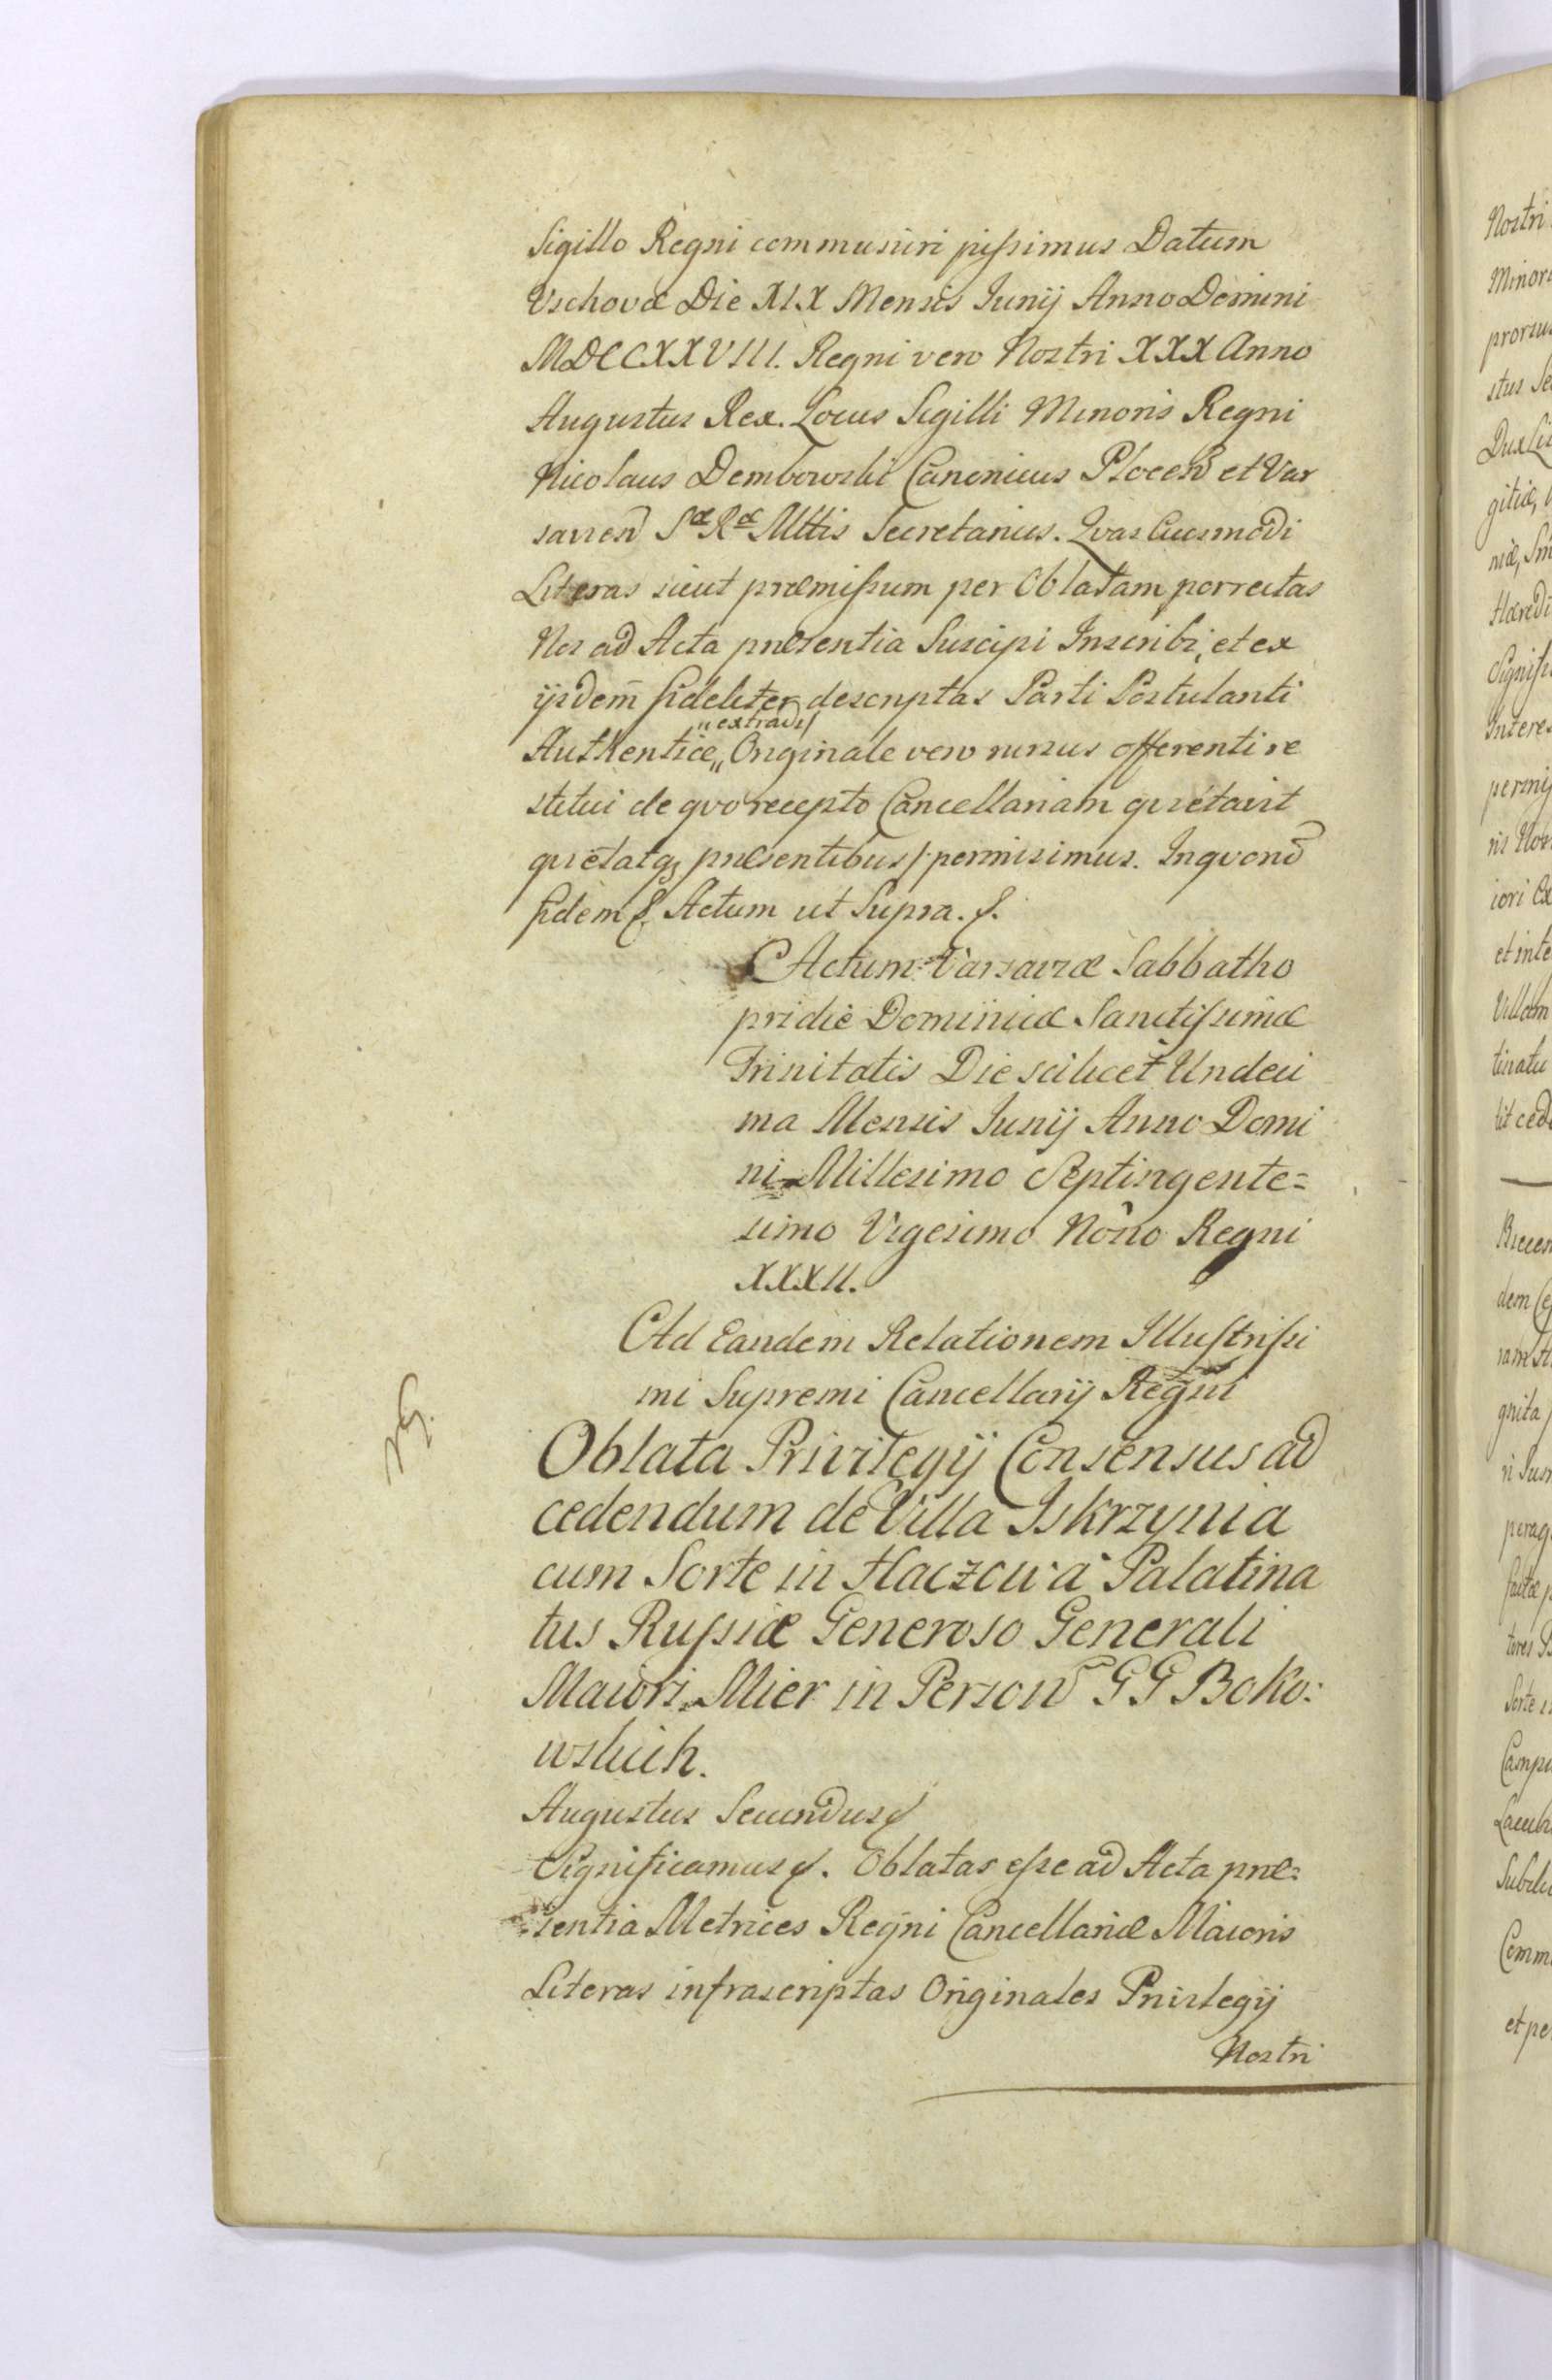 Sigillo Regni communiri jussimus Datum
Vschovæ Die XIX Mensis Junij Anno Domini
MDCCXXVIII. Regni vero Nostri XXX Anno
Augustus Rex. Locus Sigilli Minoris Regni
Nicolaus Dembowski Canonicus Plocen̄ et Var
savien̄ Sæ Ræ Mttis Secretarius. Qvas Cuiusmodi
Literas sicut præmissum per Oblatam porrectas
Nos ad Acta præsentia Suscipi Inscribi, et ex
ijsdem̄ fideliter descriptas Parti Postulanti
Authentice „extradi„ Originale vero rursus offerenti re
stitui de qvo recepto Cancellariam qvietavit
qvietatq; præsentibus /: permisimus. In qvorū
fidem &. Actum ut Supra. &.
Actum Varsaviæ Sabbatho
pridie Dominicæ Sanctissimæ
Trinitatis Die scilicet Undeci
ma Mensis Junij Anno Domi
ni Millesimo Septingente=
simo Vigesimo Nono Regni
XXXII.
Ad Eandem Relationem Illustrissi
mi Supremi Cancellarij Regni
Oblata Privilegij Consensus ad
cedendum de Villa Iskrzynia
cum Sorte in Haczowa Palatina
tus Russiæ Generoso Generali
Maiori Mier in Person̄ GG Boko:
wskich.
Augustus Secundus &
Significamus &. Oblatas esse ad Acta præ=
sentia Metrices Regni Cancellariæ Maioris
Literas infrascriptas Originales Privilegij
Nostri